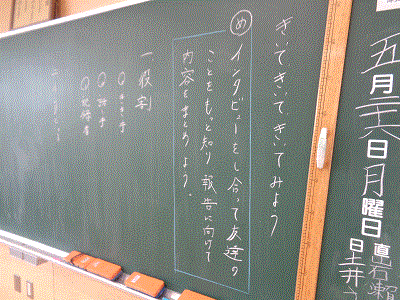 きいてきいてきいてみよう
め
インタビューをし合って友達の
ことをもっと知り 報告に向けて
内容をまとめよう.
一 役割
○きき手
○話し手
○記録者
五月二六日月曜日
日直